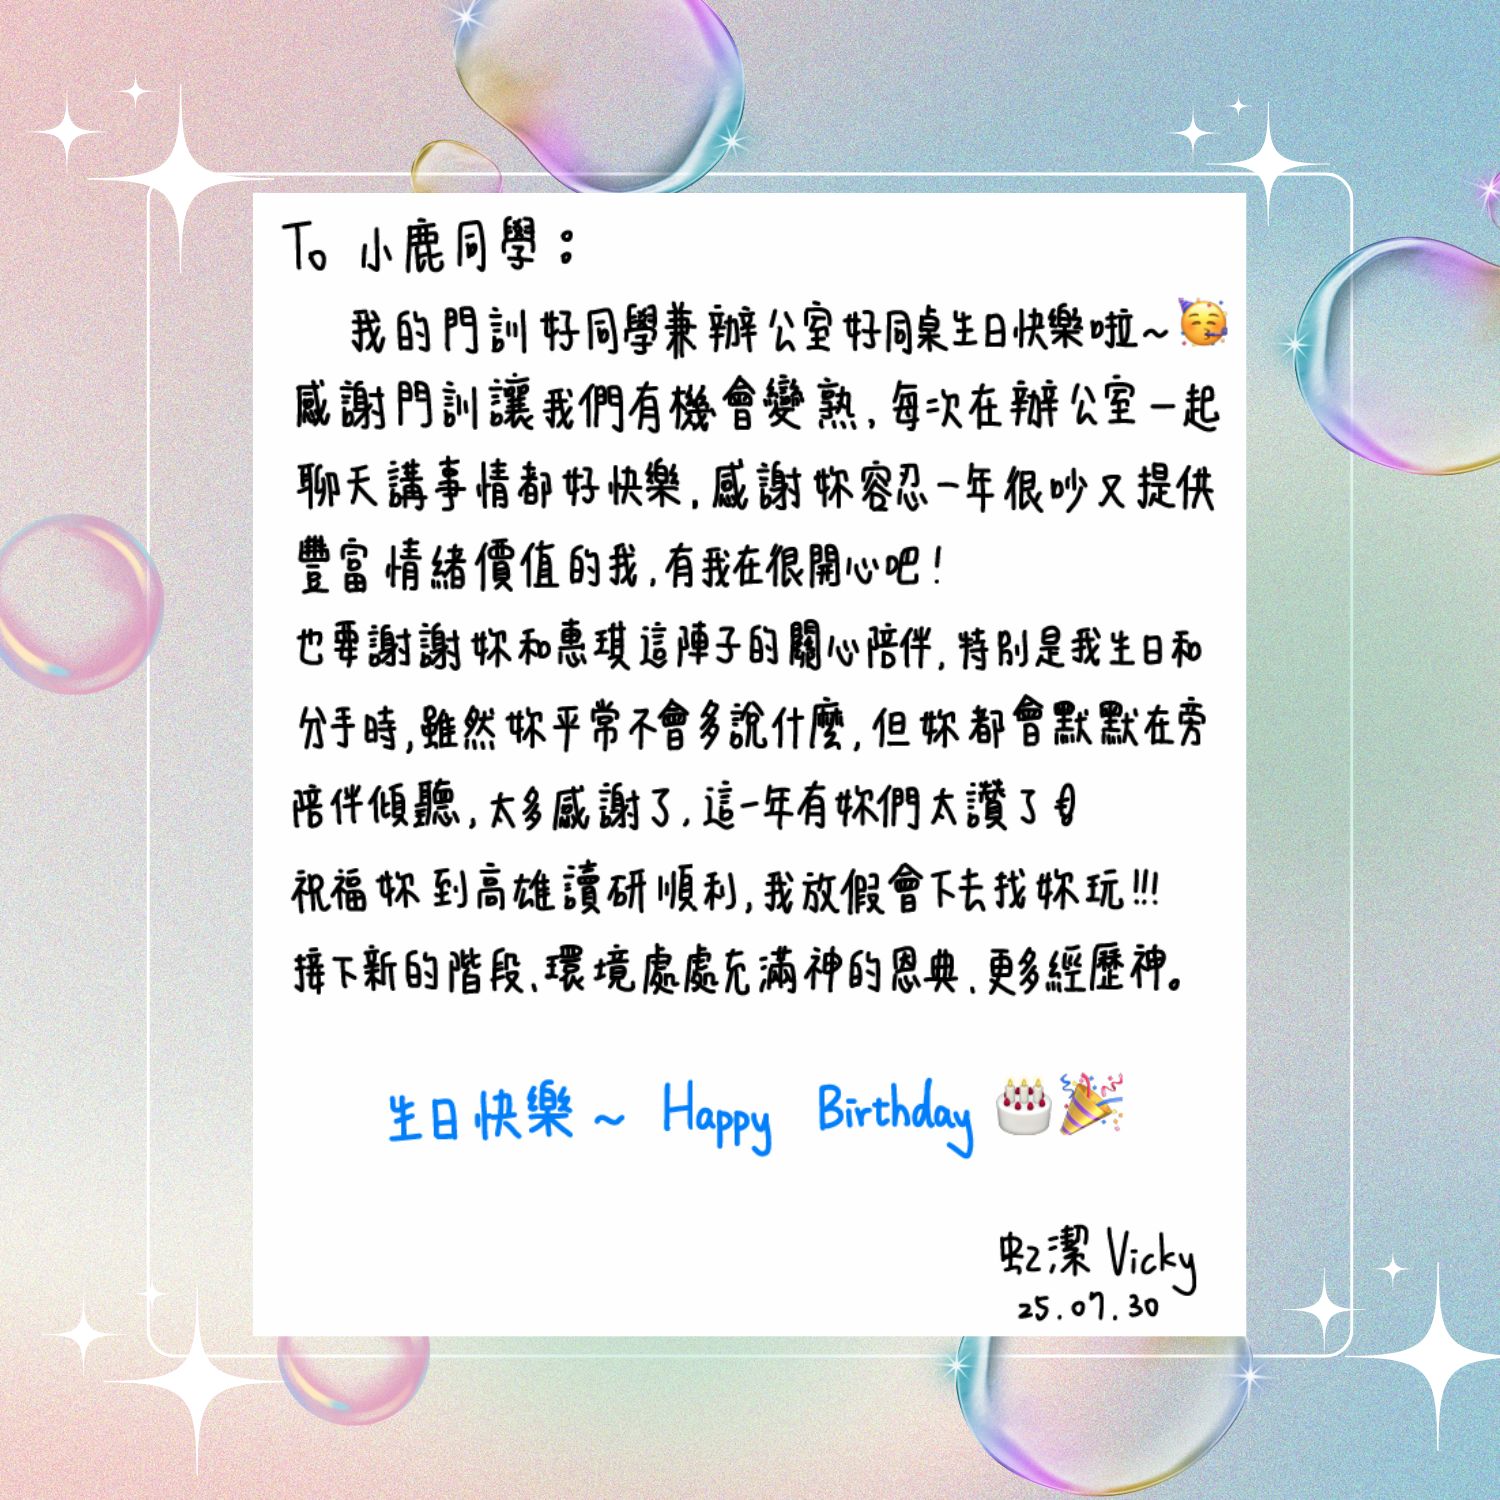 To 小鹿同學：
我的門訓好同學兼辦公室好同桌生日快樂啦~🥳
感謝門訓讓我們有機會變熟，每次在辦公室一起
聊天講事情都好快樂，感謝妳容忍一年很吵又提供
豐富情緒價值的我，有我在很開心吧！
也要謝謝妳和惠琪這陣子的關心陪伴，特別是我生日和
分手時，雖然妳平常不會多說什麼，但妳都會默默在旁
陪伴傾聽，太多感謝了，這一年有妳們太讚了
祝福妳到高雄讀研順利，我放假會下去找妳玩!!!
接下新的階段、環境處處充滿神的恩典、更多經歷神。
生日快樂~ Happy Birthday 🎂🎉
虹潔 Vicky
25.07.30